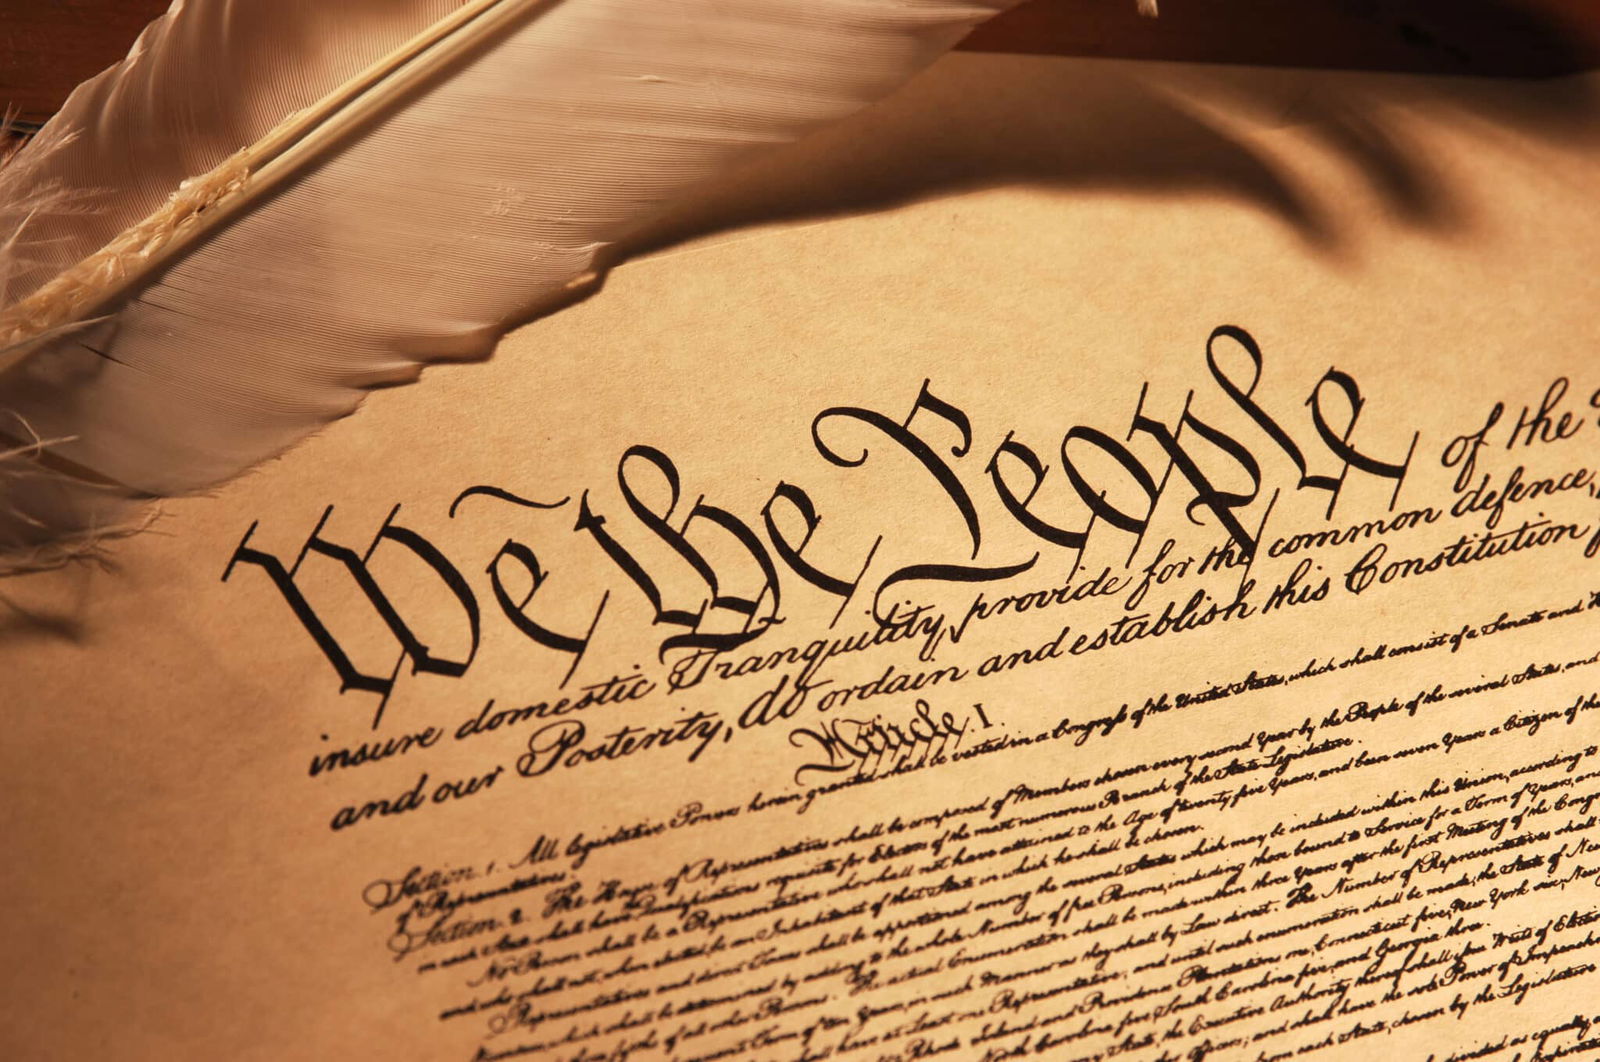 We the People of the
insure domestic Tranquility, provide for the common defence,
and our Posterity, do ordain and establish this Constitution
Article. I.
Section. 1. All legislative Powers herein granted shall be vested in a Congress of the United States, which shall consist of a Senate and
of Representatives.
Section. 2. The House of Representatives shall be composed of Members chosen every second Year by the People of the several States, and
in each State shall have Qualifications requisite for Electors of the most numerous Branch of the State Legislature.
No Person shall be a Representative who shall not have attained to the Age of twenty five Years, and been seven Years a Citizen of the
and who shall not, when elected, be an Inhabitant of that State in which he shall be chosen.
Representatives and direct Taxes shall be apportioned among the several States which may be included within this Union, according to
which shall be determined by adding to the whole Number of free Persons, including those bound to Service for a Term of Years, and
fifths of all other Persons. The actual Enumeration shall be made within three Years after the first Meeting of the
Term of ten Years, in such Manner as they shall by Law direct. The Number of Representatives shall
shall have at Least one Representative; and until such enumeration shall be made, the State of New
Rhode Island and Providence Plantations one, Connecticut five, New York six, New
North Carolina five, South Carolina five, and Georgia three.
State, the Executive Authority thereof shall issue Writs of
Officers; and shall have the sole Power of
from each State, chosen by the Legislature
divided as equally as